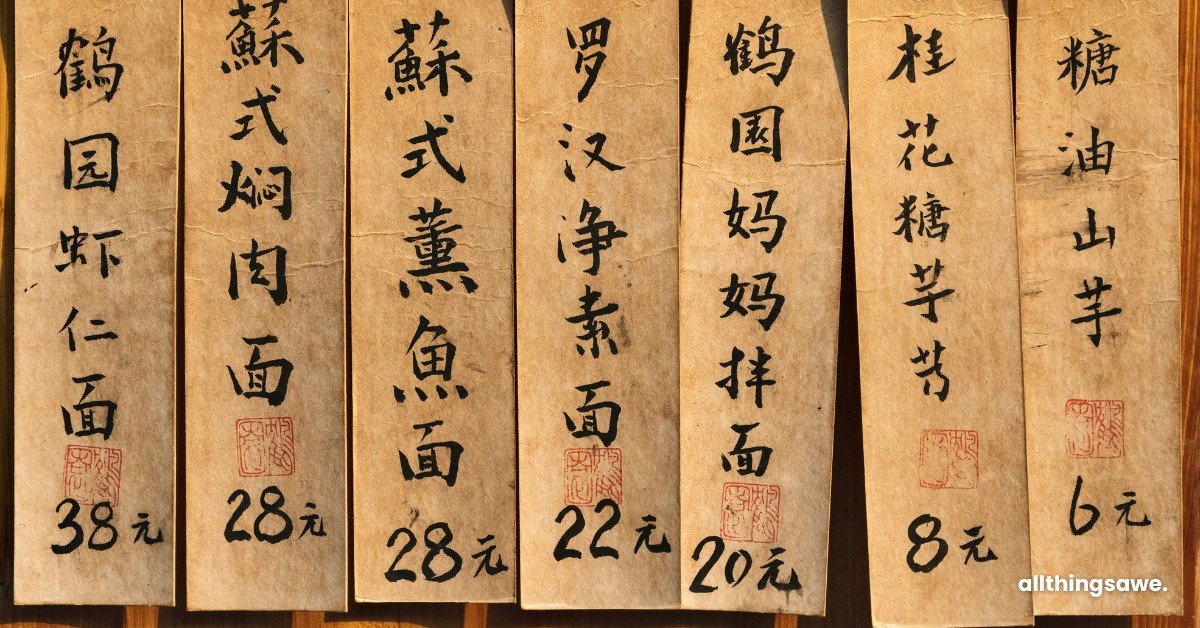 鹤园虾仁面
38元
蘇式焖肉面
28元
蘇式薰魚面
28元
罗汉净素面
22元
鹤園妈妈拌面
20元
桂花糖芋艿
8元
糖油山芋
6元
allthingsawe.